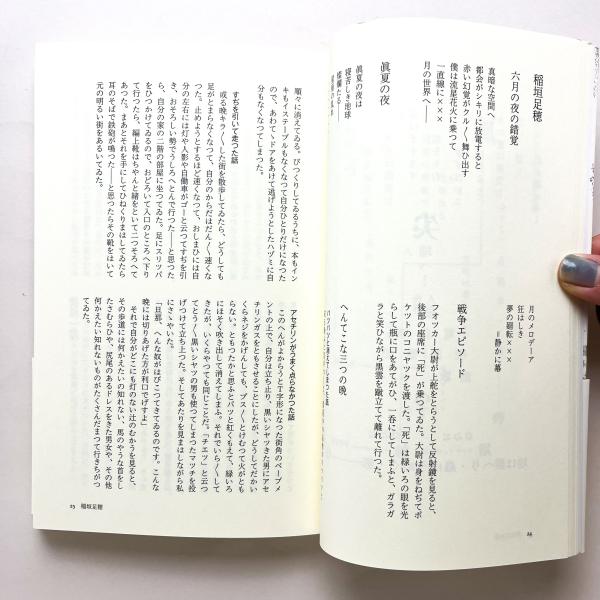 稲垣足穂
六月の夜の錯覚
真暗な空間へ
都会がシキリに放電すると
赤い幻覚がクル〳〵舞ひ出す
僕は流星花火に乗つて
一直線に×××
月の世界へ――
眞夏の夜
眞夏の夜は
寝苦しき地球
月のメロデーア
狂はしき
夢の廻転×××
＝静かに幕
戦争エピソード
フオツカー大尉が上舵をとらうとして反射鏡を見ると、
後部の座席に「死」が乗つてゐた。大尉は身をねぢてポ
ケツトのコニヤツクを渡した。「死」は緑いろの眼を光
らして瓶に口をあてがひ、一呑にしてしまふと、ガラガ
ラと笑ひながら黒雲を蹴立てて離れて行つた。
へんてこな三つの晩
24
順々に消えてゐる。びつくりしてゐるうちに、本もイン
キもイステーブルもなくなつて自分ひとりだけになつた
ので、あわてゝドアをあけて逃げようとしたハヅミに自
分もなくなつてしまつた。
すぢを引いて走つた話
或る晩キラ〳〵した街を散歩してゐたら、どうしても
足がとまらなくなつて、自分のからだはだん〳〵速くな
つた。止めようとするほど速くなつて、おしまひには自
分の左右には灯や人影や自働車がゴーと云つてすぢを引
き、おそろしい勢でうしろへとんで行つた――と思つた
ら、自分の家の二階の部屋に坐つてゐた。足にスリツパ
をひつかけてゐるので、おどろいて入口のところへ下り
て行つたら、編上靴はちやんと緒をといて二つそろへて
あつた。まあとそれを手にしてひねくりまはしてゐたら
耳のそばで鉄砲が鳴つた――と思つたらその靴をはいて
元の明るい街をあるいてゐた。
アセチリンがうまく点らなかつた話
このへんがよからうと丁字形になつた街角のペーブメ
ントの上で、自分は立ち止り、黒いシヤツをきた男にアセ
チリンガスをともさせることにしたが、どうしてだかい
くらネジをかげんしても、プス〳〵とけむつて火がとも
らない。ともつたかと思ふとパツと紅くもえて、緑いろ
にほそく吹き出して消えてしまふ。それでいら〳〵して
きたが、いくらやつても同じことだ。「チエツ」と云つ
てとう〳〵黒いシヤツの男も使つてしまつたマツチを投
げつけて立ち上つた。そしてあたりを見まはしながら私
にさゝやいた。
「旦那、へんな奴がはびこつてきてゐるのです。こんな
晩には切りあげた方が利口でげすよ」
それで自分がどこにも灯のない辻のむかうを見ると、
その歩道には何かえたいの知れない、馬のやうな首をし
たさむらひや、尻尾のあるドレスをきた男女や、その他
何かえたい知れないものがたくさんだまつて行きちがつ
てゐた。
25 稲垣足穂